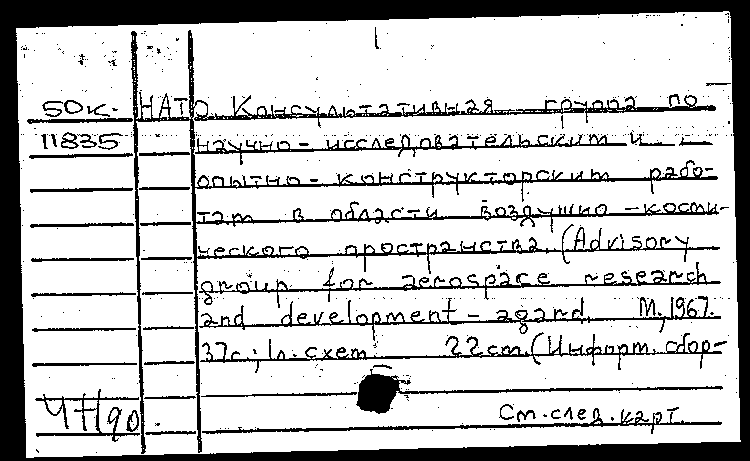 50к. НАТО. Консультативная группа по
11835 научно-исследовательским и
опытно-конструкторским рабо-
там в области воздушно-косми-
ческого пространства. (Advisory
group for aerospace research
and development - agard. М., 1967.
37с.; 1л. схем 22см. (Информ. сбор-
См. след. карт.